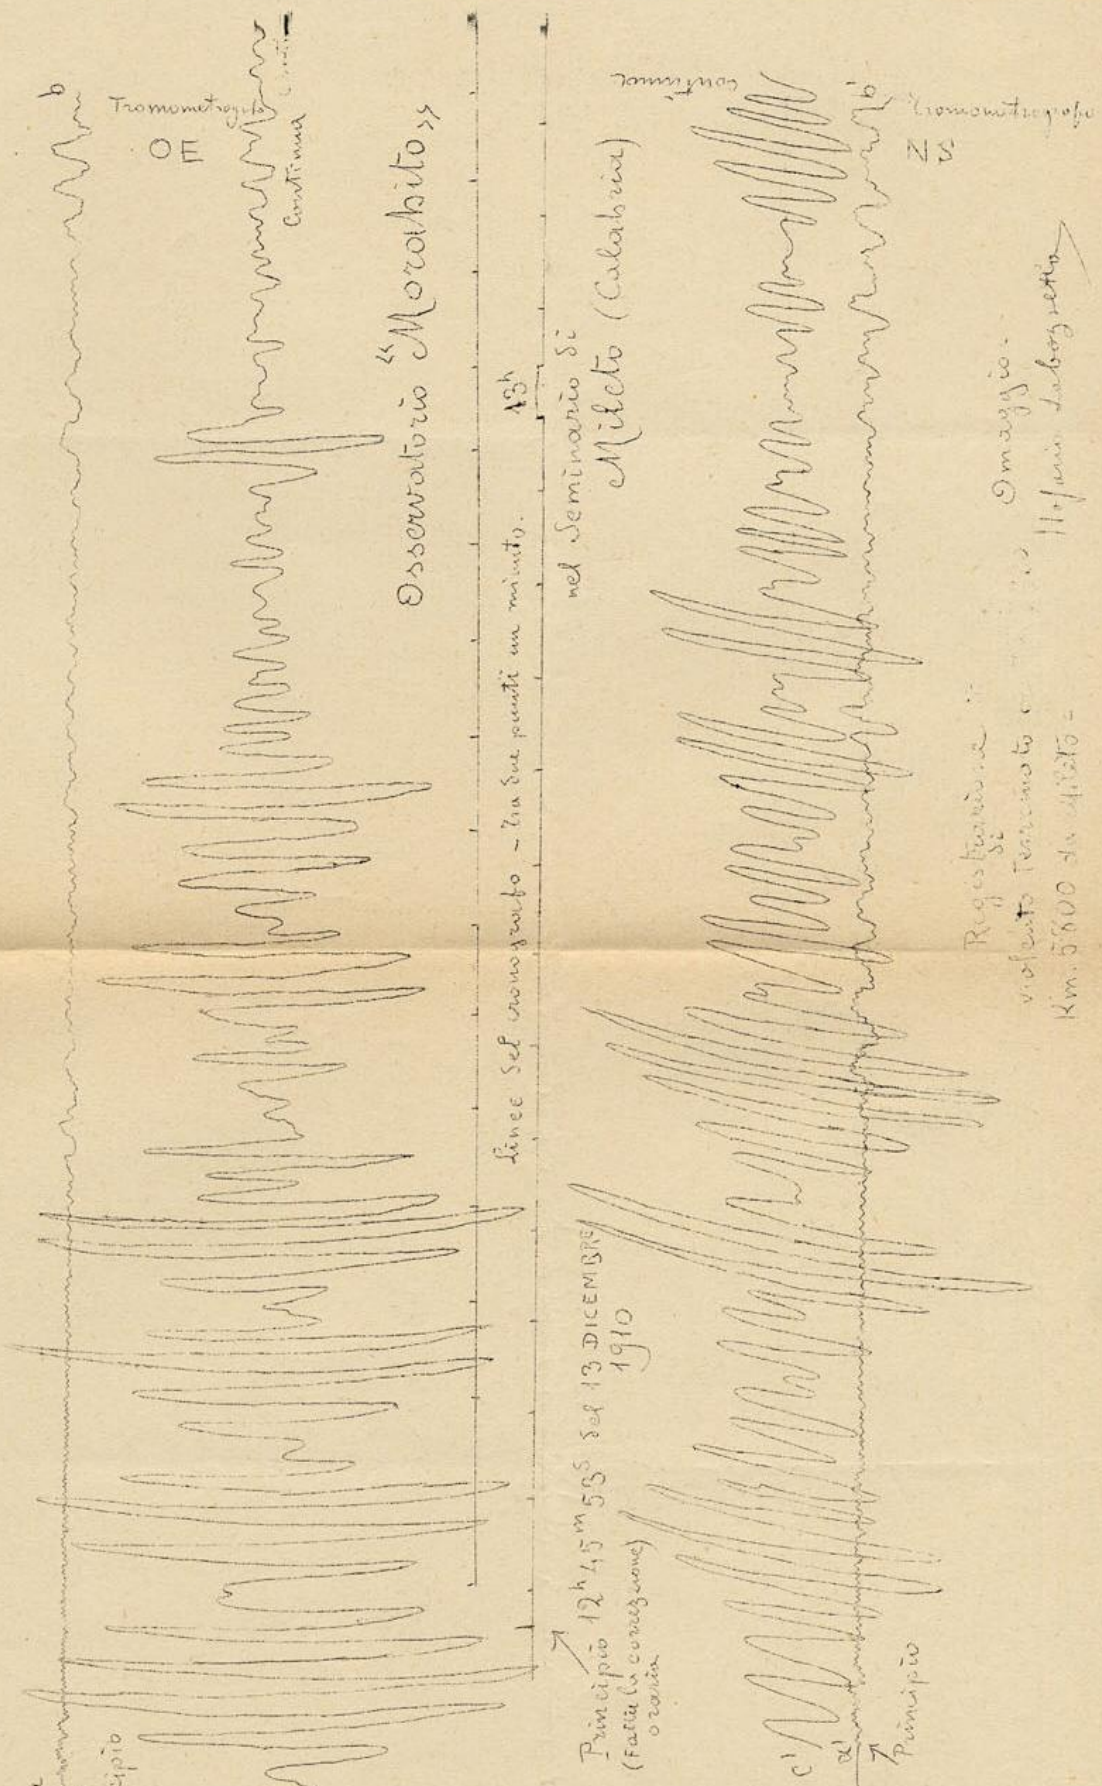 b
Tromometrografo
O
E
Continua
Osservatorio «Morabito»
13h
Linee del cronografo – tra due punti un minuto.
nel Seminario di
Mileto (Calabria)
Principio 12h 45m 53s del 13 DICEMBRE
1910
(Fatta la correzione
oraria
continua
b'
N
S
c'
a'
Principio
Omaggio
Registrazione
di
violento Terremoto
Km. 5800 da Mileto =